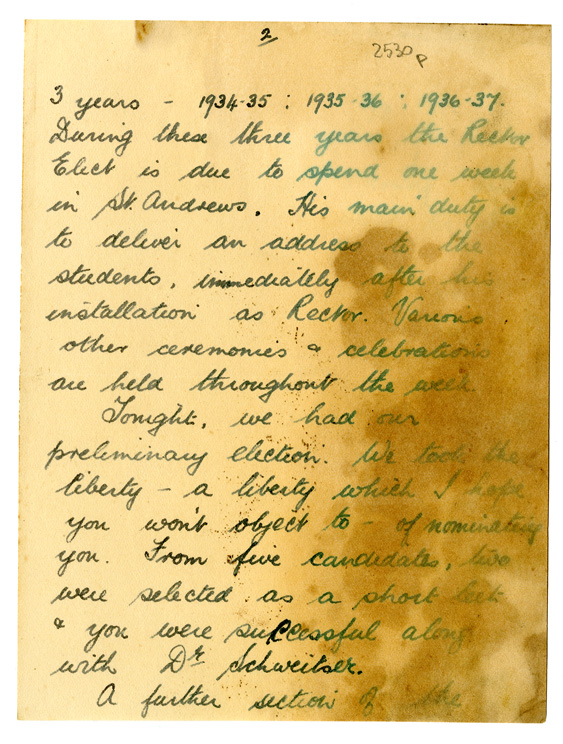 2
2530 P
3 years - 1934-35 : 1935-36 : 1936-37.
During these three years the Rector
Elect is due to spend one week
in St. Andrews. His main duty is
to deliver an address to the
students, immediately after his
installation as Rector. Various
other ceremonies & celebrations
are held throughout the week
Tonight, we had our
preliminary election. We took the
liberty - a liberty which I hope
you won't object to - of nominating
you. From five candidates, two
were selected as a short leet
& you were successful along
with Dr Schweitser.
A further section of the